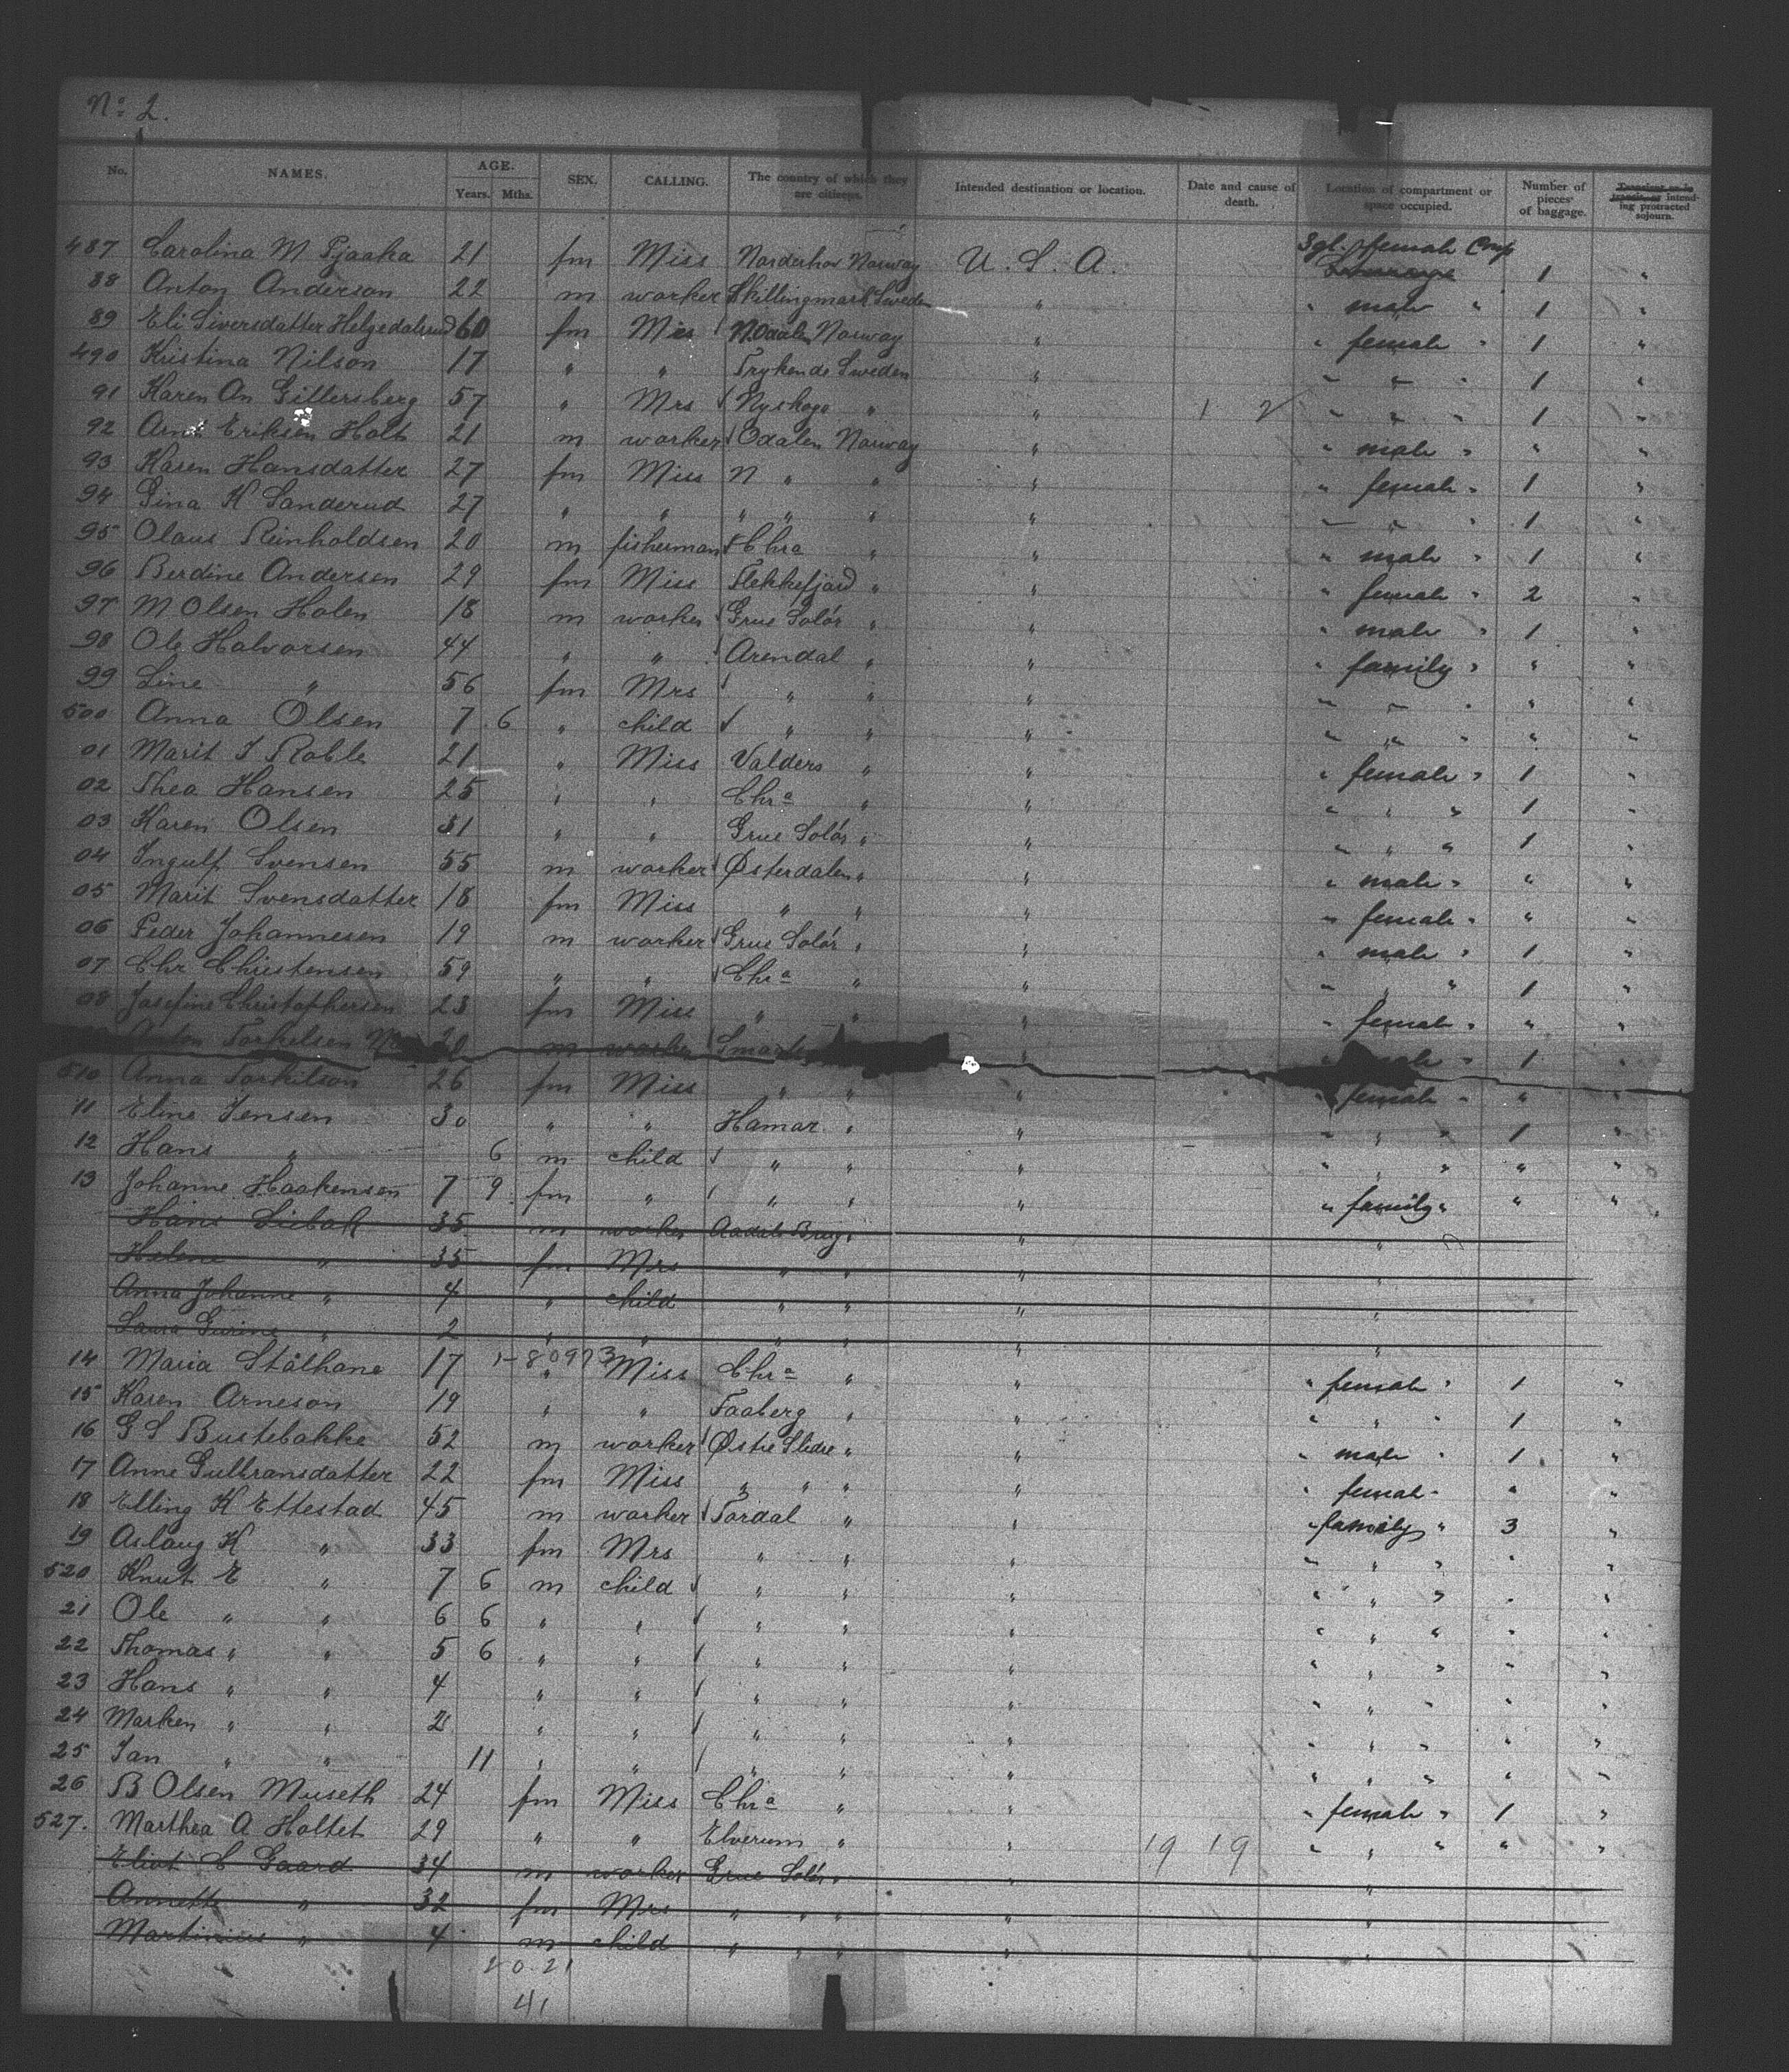 No: 2.
No. NAMES. AGE. Years. Mths. SEX. CALLING. The country of which they are citizens. Intended destination or location. Date and cause of death. Location of compartment or space occupied. Number of pieces of baggage. Transient or in transit, or intending protracted sojourn.
487 Carolina M 21 fm Miss Norderhov Norway U. S. A. Sgl. female Comp 1 "
88 Anton Anderson 22 m worker Skillingmark Sweden " " male " 1 "
89 Eli Siversdatter Helgedalsrud 60 fm Miss N.Odalen Norway " " female " 1 "
490 Kristina Nilson 17 " " Frykende Sweden " " " " 1 "
91 Karen An Gillersberg 57 " Mrs Nyskoga " " 1 2 " " " 1 "
92 Arne Eriksen Holt 21 m worker Odalen Norway " " male " " "
93 Karen Hansdatter 27 fm Miss N " " " " female " 1 "
94 Gina K Sanderud 27 " " " " " " " " " 1 "
95 Olaus Reinholdsen 20 m fisherman Chra " " " male " 1 "
96 Berdine Andersen 29 fm Miss Flekkefjord " " " female " 2 "
97 M Olsen Holen 18 m worker Grue Solör " " " male " 1 "
98 Ole Halvorsen 44 " " Arendal " " " family " " "
99 Line " 56 fm Mrs " " " " " " " "
500 Anna Olsen 7 6 " child " " " " " " " "
01 Marit I Roble 21 " Miss Valders " " " female " 1 "
02 Thea Hansen 25 " " Chra " " " " " 1 "
03 Karen Olsen 31 " " Grue Solör " " " " " 1 "
04 Ingulf Svensen 55 m worker Østerdalen " " " male " " "
05 Marit Svensdatter 18 fm Miss " " " " female " " "
06 Peder Johannesen 19 m worker Grue Solör " " " male " 1 "
07 Chr Christensen 59 " " Chra " " " " " 1 "
08 Josefine Christophersen 23 fm Miss " " " " female " " "
Anton Torkelsen m worker " " male " 1 "
510 Anna Torkilson 26 fm Miss " " " " female " " "
11 Eline Jensen 30 " " Hamar " " " " " 1 "
12 Hans " 6 m child " " " " " " " "
13 Johanne Haakensen 7 9 fm " " " " " family " " "
Hans 35 m worker Aadals Brug " " "
Helene " 35 fm Mrs " " " "
Anna Johanne " 4 " child " " " "
Laura Gurine " 2 " " " " " "
14 Maria Stålhane 17 1-80973 " Miss Chra " " " female " 1 "
15 Karen Arneson 19 " " Faaberg " " " " " 1 "
16 G S Bustebakke 52 m worker Østre Slidre " " " male " 1 "
17 Anne Gulbransdatter 22 fm Miss " " " " " female " " "
18 Elling K Ettestad 45 m worker Tordal " " " family " 3 "
19 Aslaug K " 33 fm Mrs " " " " " " " "
520 Knut E " 7 6 m child " " " " " " " "
21 Ole " " 6 6 " " " " " " " " " "
22 Thomas " " 5 6 " " " " " " " " " "
23 Hans " " 4 " " " " " " " " " "
24 Marken " " 2 " " " " " " " " " "
25 Jan " " 11 " " " " " " " " " "
26 B Olsen Museth 24 fm Miss Chra " " " female " 1 "
527. Marthea A Holtet 29 " " Elverum " " 19 19 " " " " "
C Gaard 34 m worker Grue Solör " " "
Annette " 32 fm Mrs " " " " "
Martinius " 4 m child " " " " "
20 21
41